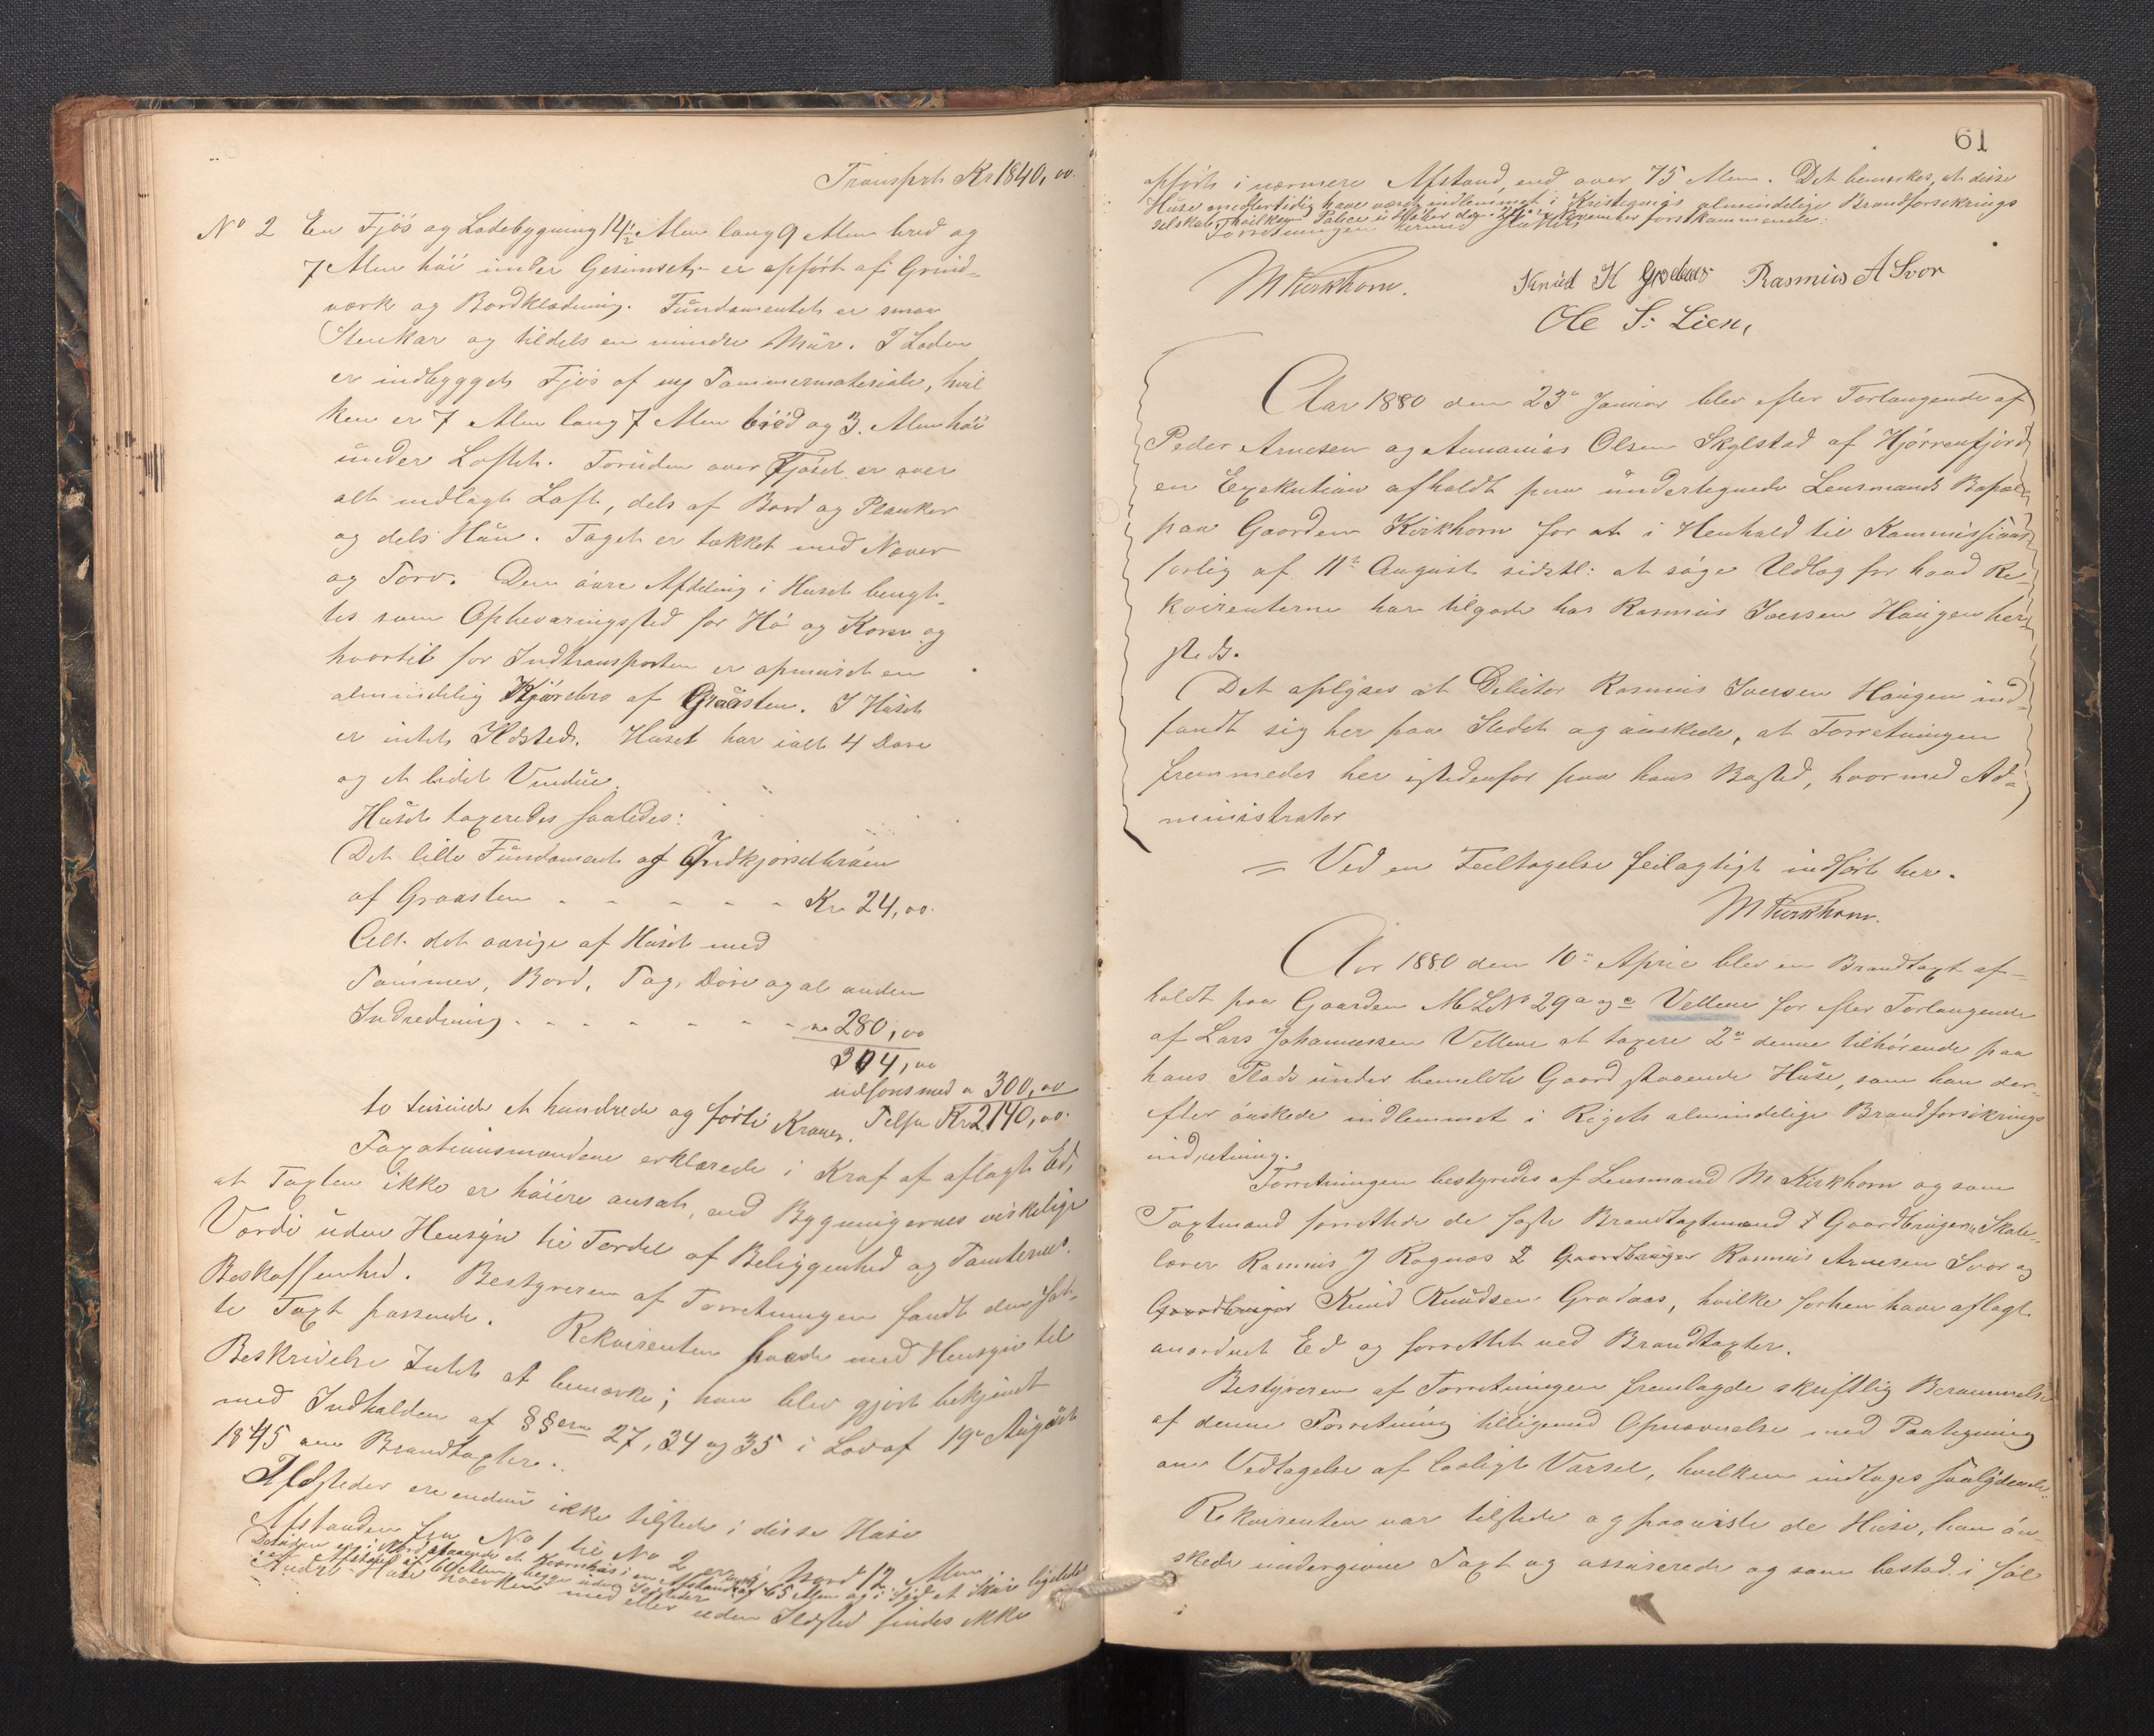 Transport Kr 1840,00.
No 2 En Fjøs og Ladebygning 14½ Alen lang 9 Alen bred og
7 Alen høi under Gesimset, er opført af Grind-
værk og Bordklædning. Fundamentet er smaa
Stenkar og tildels en mindre Mur. I Laden
er indbygget Fjøs af ny Tømmermateriale, hvil
ken er 7 Alen lang 7 Alen bred og 3. Alen høi
under Loftet. Foruden over Fjøset er over
alt indlagt Loft, dels af Bord og Planker
og dels Hun. Taget er tækket med Næver
og Torv. Den øvre Afdeling i Huset benyt-
tes som Opbevaringssted for Hø og Korn og
hvortil for Indtransporten er opmuret en
almindelig Kjørebro af Graasten. I Huset
er intet Ildsted. Huset har ialt 4 Døre
og et lidet Vindue.
Huset taxeredes saaledes:
Det lille Fundament og Indkjørselbroen
af Graasten - - - - - Kr 24,00.
Alt det øvrige af Huset med
Tømmer, Bord, Tag, Døre og al anden
Indredning - - - - - - - " 280,00
304,00
udføres med " 300,00
to tusinde et hundrede og førti Kroner. Tilsm Kr 2140,00.
Taxationsmændene erklærede i Kraf af aflagt Ed,
at Taxten ikke er høiere ansat, end Bygningernes virkelige
Værdi uden Hensyn til Fordel af Beliggenhed og Tomternes
Beskaffenhed. Bestyreren af Forretningen fandt den sat-
te Taxt passende. Rekvirenten havde med Hensyn til
Beskrivelse Intet at bemærke; han blev gjort bekjendt
med Indholden af §§erne 27, 34 og 35 i Lov af 19de August
1845 om Brandtaxter.
Ildsteder ere endnu ikke tilstede i disse Huse
Afstanden fra No 1 til No 2 er mod Nord 12 Alen.
Desuden er i Nord staaende et Kvernhus i en Afstand af 65 Alen og i Syd et Skur ligeledes
i en Afstand af Alen, begge uden Ildsteder.
Andre Huse hverken med eller uden Ildsted findes ikke
61
opført i nærmere Afstand, end over 75 Alen. Det bemærkes, at disse
Huse imidlertidig have været indlemmet i Kristianias almindelige Brandforsikrings
selskab, hvilken Police udløber den November førstkommende.
Forretningen hermed sluttet
M Kirkhorn. Knud K Grodaas Rasmus A Svor
Ole S. Lien,
Aar 1880 den 23de Januar blev efter Forlangende af
Peder Arnesen og Annanias Olsen Skylstad af Hjørrenfjord
en Exekution afholdt paa undertegnede Lensmands Bopæl
paa Gaarden Kirkhorn for at i Henhold til Kommissions
forlig af 11te August sidstl: at søge Udlag for hvad Re-
kvirenterne har tilgode hos Rasmus Iversen Haugen her-
steds.
Det oplyses at Debitor Rasmus Iversen Haugen ind-
fandt sig her paa Stedet og ønskede, at Forretningen
fremmedes her istedenfor paa hans Bosted, hvormed Ad-
ministrator
= Ved en Feiltagelse feilagtigt indført her.
M Kirkhorn.
Aar 1880 den 10de April blev en Brandtaxt af-
holdt paa Gaarden M L No 29 a og c Vellene for efter Forlangende
af Lars Johannessen Vellene at taxere 2de denne tilhørende paa
hans Plads under bemeldte Gaard staaende Huse, som han der-
efter ønskede indlemmet i Rigets almindelige Brandforsikrings
indretning.
Forretningen bestyredes af Lensmand M Kirkhorn og som
Taxtmænd forrettede de faste Brandtaxtmænd 1 Gaardbruger, Skole-
lærer Rasmus J Rognæs 2 Gaardbruger Rasmus Arnesen Svor og
Gaardbruger Knud Knudsen Grodaas, hvilke forhen have aflagt
anordnet Ed og forrettet ved Brandtaxter.
Bestyreren af Forretningen fremlagde skriftlig Berammelse
af denne Forretning tilligemed Opnævnelse med Paategning
om Vedtagelse af lovligt Varsel, hvilken indtages saalydende.
Rekvirenten var tilstede og paaviste de Huse, han øn-
skede undergivne Taxt og assurerede og som bestod i føl